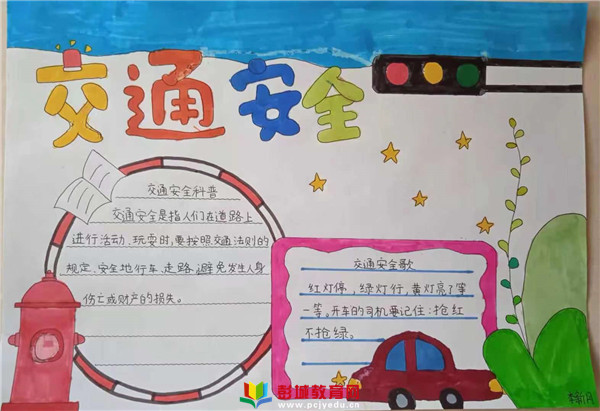 交通安全
交通安全科普
交通安全是指人们在道路上
进行活动、玩耍时,要按照交通法则的
规定、安全地行车、走路,避免发生人身
伤亡或财产的损失。
交通安全歌
红灯停,绿灯行,黄灯亮了等
一等。开车的司机要记住:抢红
不抢绿。
彭城教育网
www.pcjyedu.cn